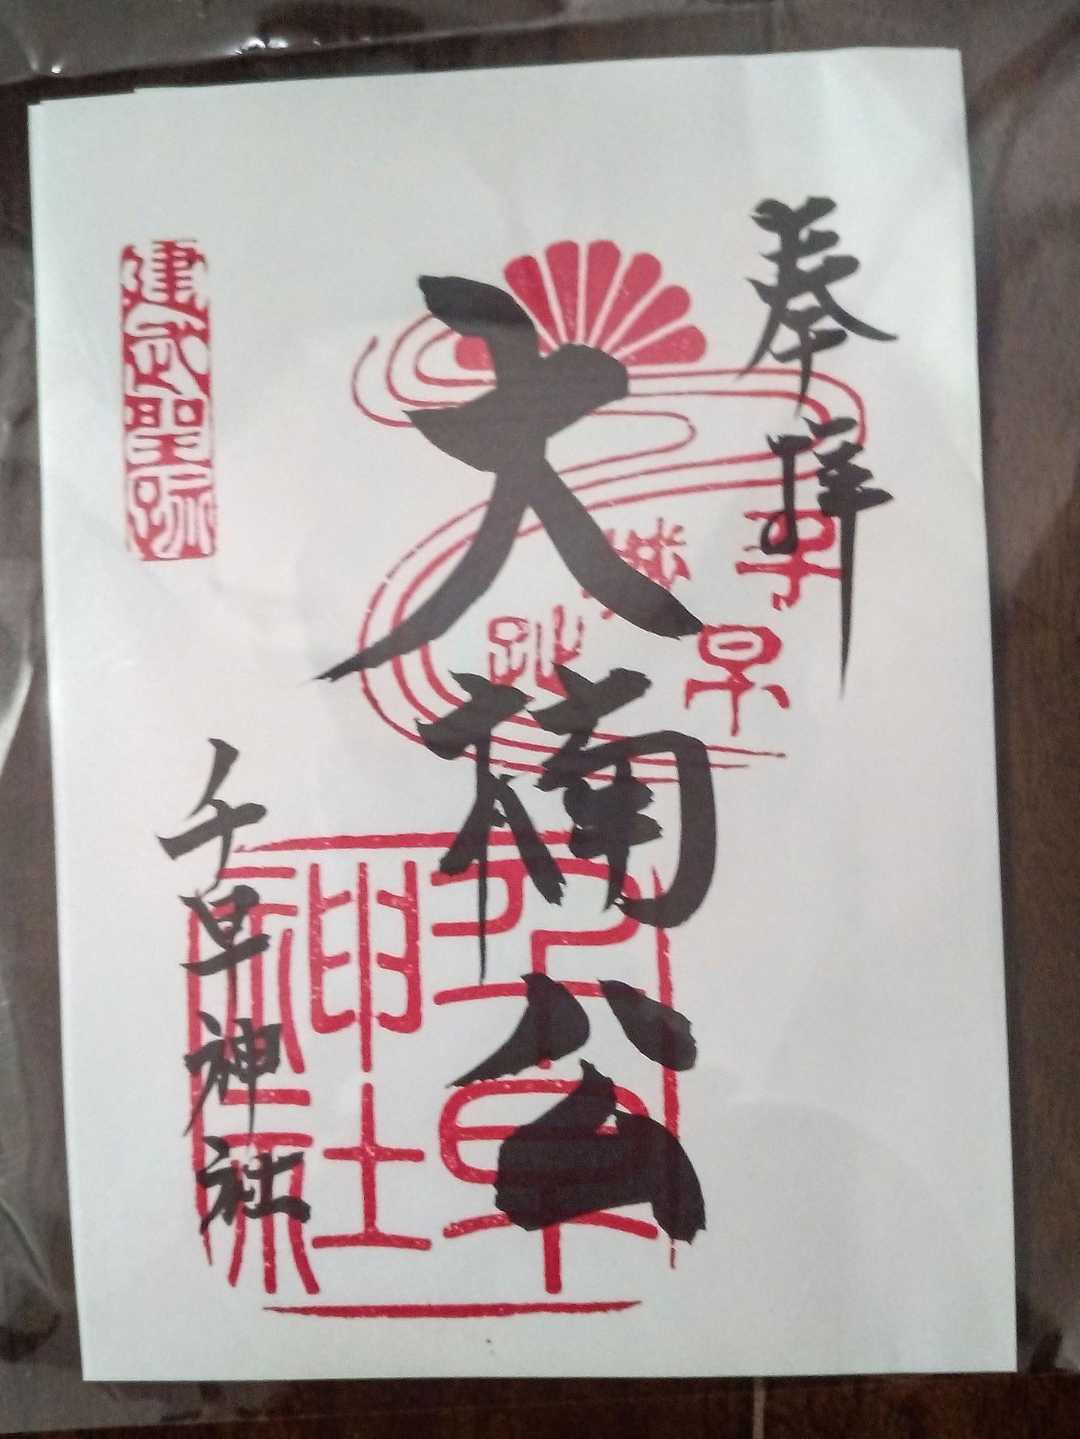 奉拝
千早
城
趾
大楠公
千早
神社
建武聖跡
千早神社